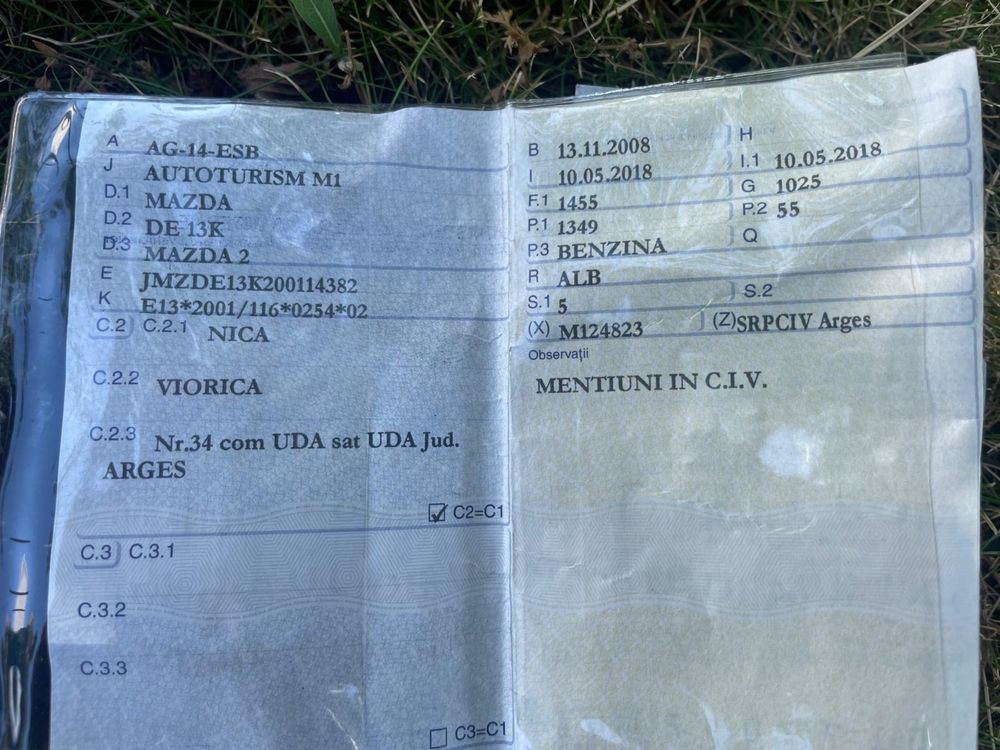 A AG-14-ESB
J AUTOTURISM M1
D.1 MAZDA
D.2 DE 13K
D.3 MAZDA 2
E JMZDE13K200114382
K E13*2001/116*0254*02
C.2 C.2.1 NICA
C.2.2 VIORICA
C.2.3 Nr.34 com UDA sat UDA Jud.
ARGES
C2=C1
C.3 C.3.1
C.3.2
C.3.3
C3=C1
B 13.11.2008 H
I 10.05.2018 I.1 10.05.2018
F.1 1455 G 1025
P.1 1349 P.2 55
P.3 BENZINA Q
R ALB
S.1 5 S.2
(X) M124823 (Z) SRPCIV Arges
Observații
MENTIUNI IN C.I.V.